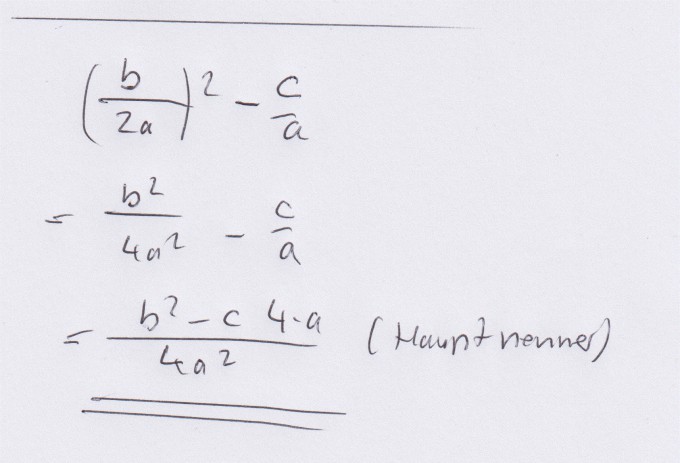 (b/2a)² - c/a
= b²/4a² - c/a
= (b² - c 4·a)/4a² (Hauptnenner)